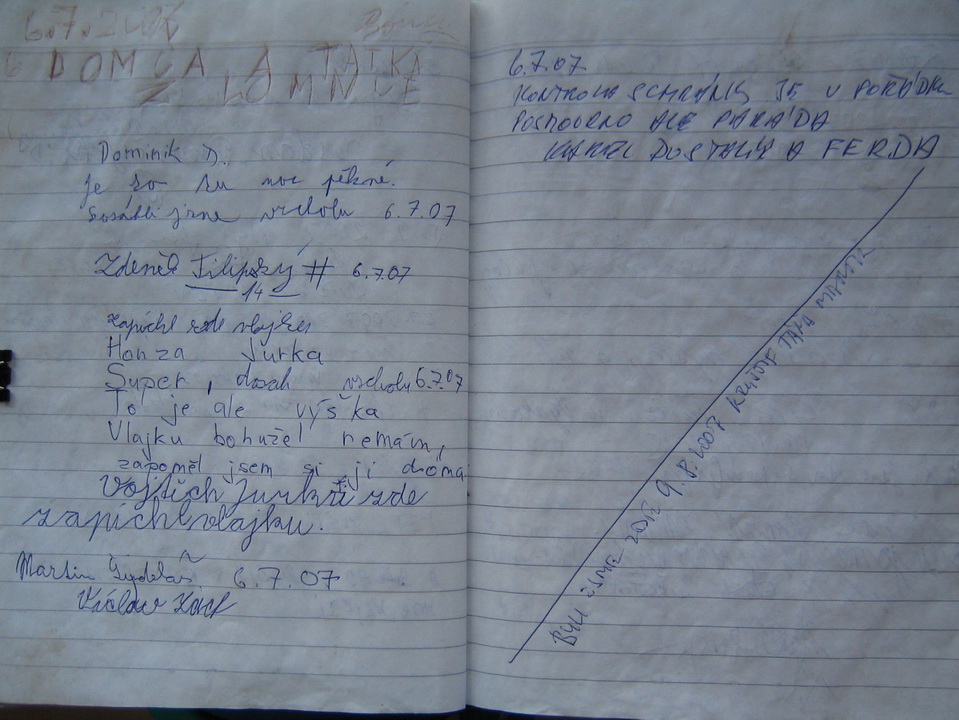 6.7.2007
DOMČA A TAŤKA
Z LOMNICE
Dominik D.
je to tu moc pěkné.
dosáhli jsme vrcholu 6.7.07
Zdeněk Filipský # 6.7.07
14
zapichl zde vlajku
Honza Jurka
Super, dosah vrcholu 6.7.07
To je ale výška
Vlajku bohužel nemám,
zapoměl jsem si ji doma
Vojtěch Jurka zde
zapichl vlajku.
Martin 6.7.07
Václav
6.7.07
KONTROLA SCHRÁNKY JE V POŘÁDKU
POSMOURNO ALE PARÁDA
KAREL DOSTALÍK A FERDA
BYLI JSME ZDE 9.8.2007 TÁTA